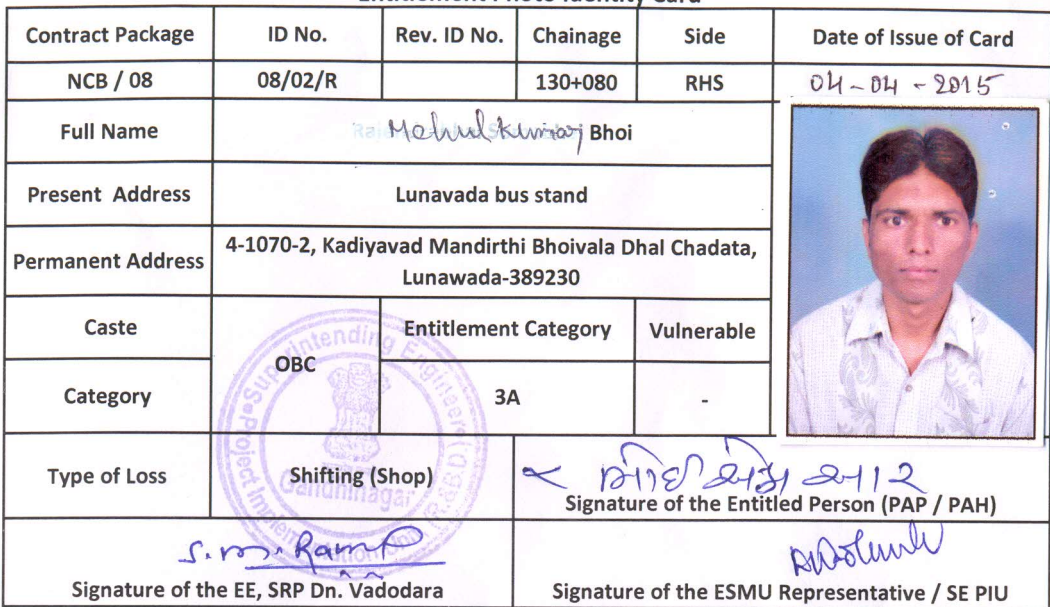 Entitlement Photo Identity Card
Contract Package ID No. Rev. ID No. Chainage Side Date of Issue of Card
NCB / 08 08/02/R 130+080 RHS 04-04-2015
Full Name Mehulkumar Bhoi
Present Address Lunavada bus stand
Permanent Address 4-1070-2, Kadiyavad Mandirthi Bhoivala Dhal Chadata,
Lunawada-389230
Caste OBC Entitlement Category Vulnerable
Category 3A -
Superintending Engineer (R&B.D.)
Project Implementation Unit
Gandhinagar
Type of Loss Shifting (Shop)
ભોઈ એમ આર
Signature of the Entitled Person (PAP / PAH)
S.M. Rami
Signature of the EE, SRP Dn. Vadodara Signature of the ESMU Representative / SE PIU